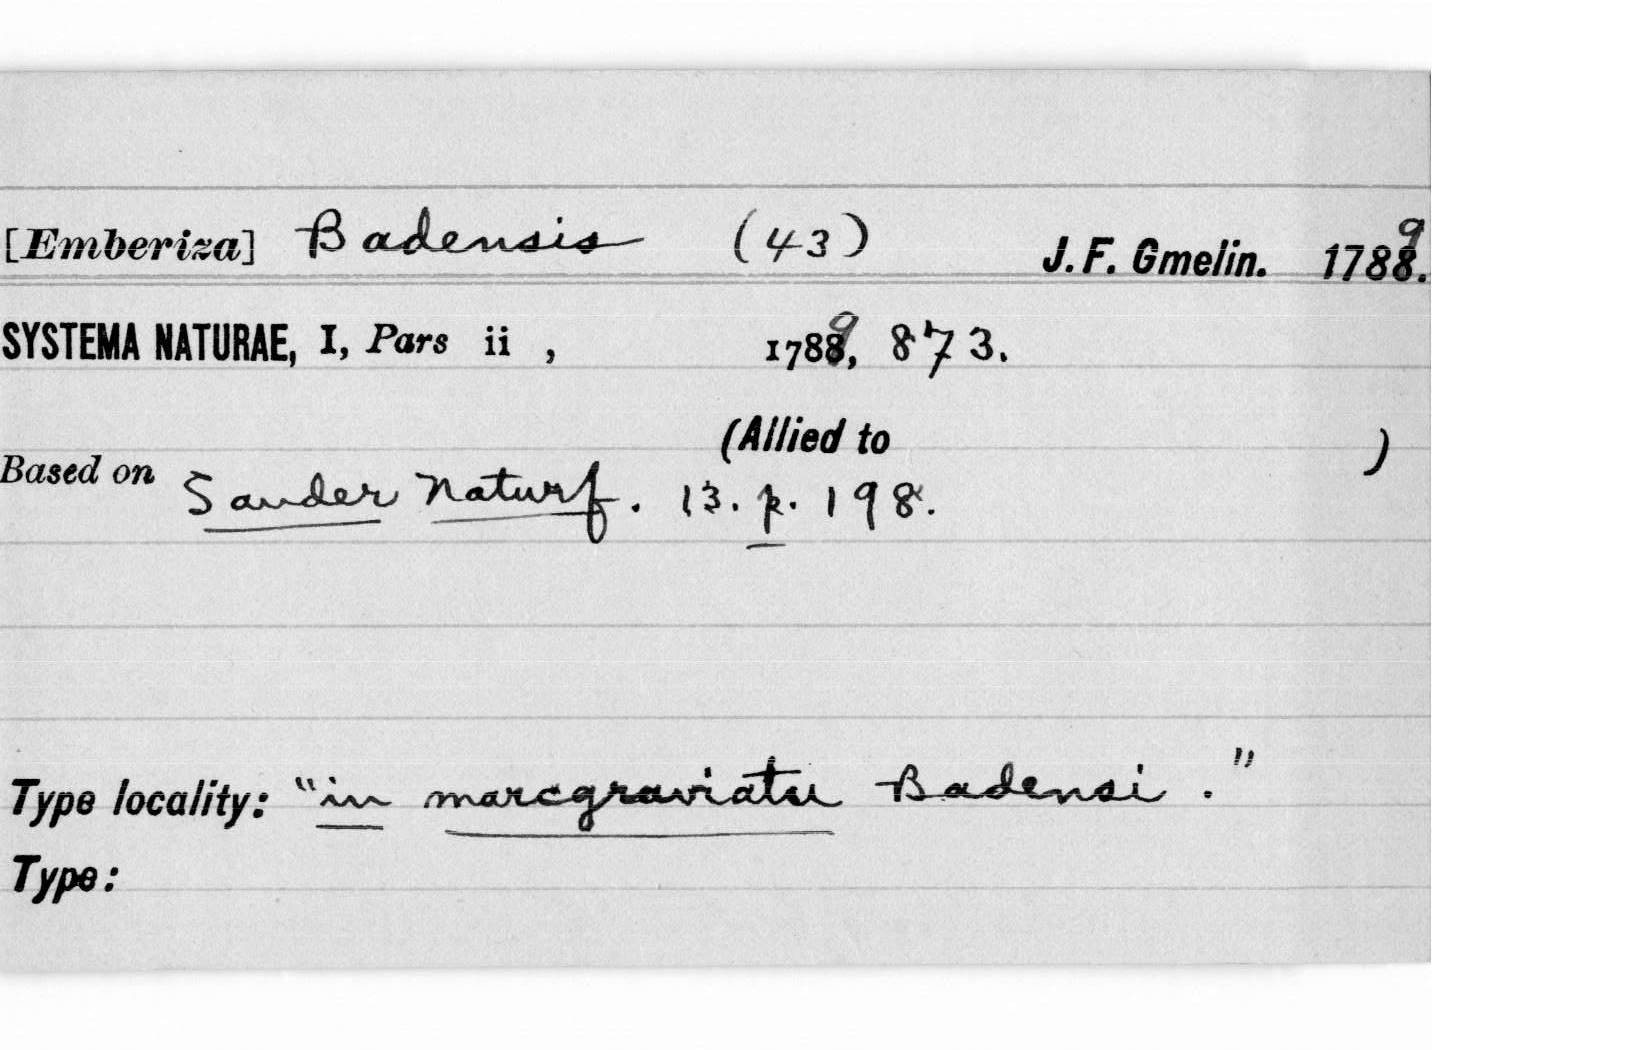 [Emberiza] Badensis (43) J. F. Gmelin. 1789.
SYSTEMA NATURAE, I, Pars ii , 1789, 873.
(Allied to )
Based on Sander Naturf. 13. p. 198.
Type locality: "in marcgraviatu Badensi."
Type: